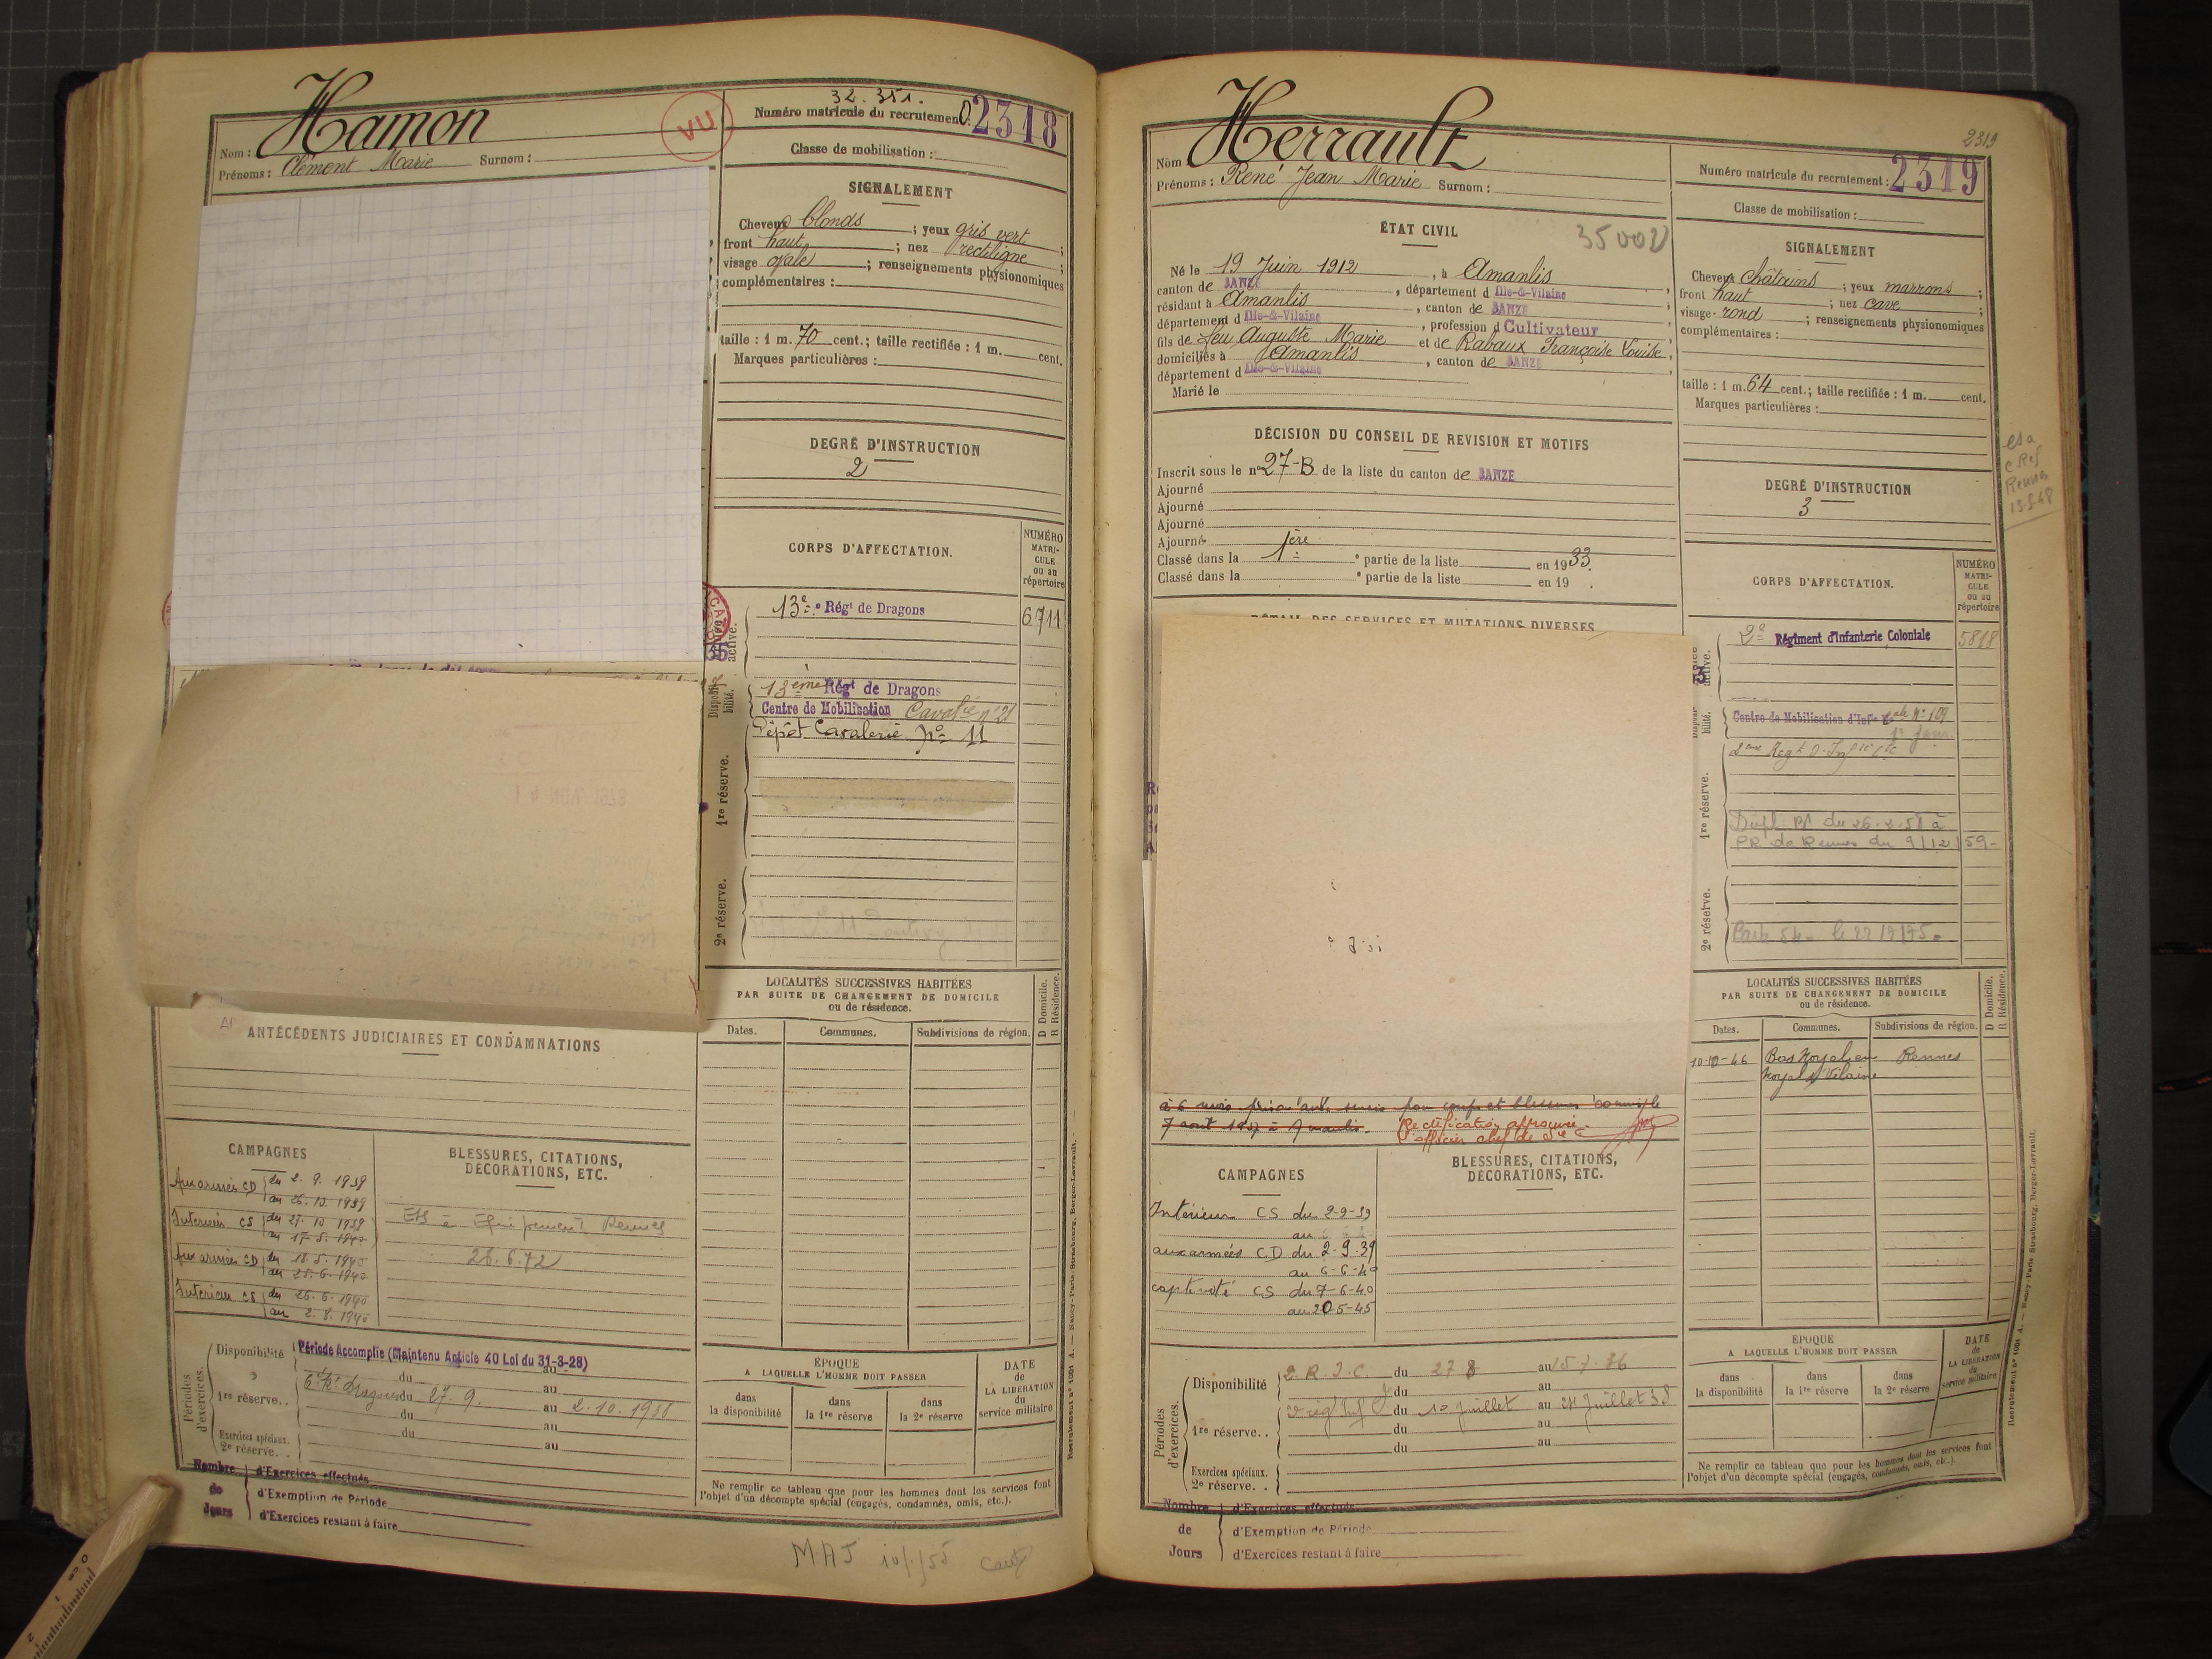 Hamon
Nom :
Prénoms : Clément Marie Surnom :
VU
32.351.
Numéro matricule du recrutement : 02318
Classe de mobilisation :
SIGNALEMENT
Cheveux blonds ; yeux gris vert ;
front haut ; nez rectiligne ;
visage ovale ; renseignements physionomiques
complémentaires :
taille : 1 m. 70 cent.; taille rectifiée : 1 m. cent.
Marques particulières :
DEGRÉ D'INSTRUCTION
2
CORPS D'AFFECTATION.
NUMÉRO MATRICULE ou au répertoire
13e Régt de Dragons 6711
active.
Disponibilité.
13ème Régt de Dragons
Centre de Mobilisation Cavalie n° 21
Dépôt Cavalerie No 11
1re réserve.
2e réserve.
LOCALITÉS SUCCESSIVES HABITÉES
PAR SUITE DE CHANGEMENT DE DOMICILE
ou de résidence.
D Domicile.
R Résidence.
Dates. Communes. Subdivisions de région.
ANTÉCÉDENTS JUDICIAIRES ET CONDAMNATIONS
CAMPAGNES
Aux armées CD du 2.9.1939
au 26.10.1939
Intérieur CS du 27.10.1939
au 17.5.1940
Aux armées CD du 18.5.1940
au 25.6.1940
Intérieur CS du 26.6.1940
au 2.8.1940
BLESSURES, CITATIONS,
DÉCORATIONS, ETC.
Rennes
26.6.72
Périodes d'exercices.
Disponibilité Période Accomplie (Maintenu Article 40 Loi du 31-3-28)
du au
1re réserve.. Dragons du 27.9. au 2.10.1938
du au
du au
Exercices spéciaux.
2e réserve. .
Nombre de Jours
d'Exercices effectués
d'Exemption de Période
d'Exercices restant à faire
ÉPOQUE
A LAQUELLE L'HOMME DOIT PASSER
DATE de LA LIBÉRATION du service militaire
dans la disponibilité
dans la 1re réserve
dans la 2e réserve
Ne remplir ce tableau que pour les hommes dont les services font
l'objet d'un décompte spécial (engagés, condamnés, omis, etc.).
MAJ
Herrault
2319
Nom
Prénoms : René Jean Marie Surnom :
Numéro matricule du recrutement : 2319
Classe de mobilisation :
ÉTAT CIVIL
Né le 19 Juin 1912, à Amanlis
canton de JANZE, département d Ille-&-Vilaine
résidant à Amanlis, canton de JANZE
département d Ille-&-Vilaine, profession d Cultivateur
fils de feu Auguste Marie et de Rabaux Françoise Louise,
domiciliés à Amanlis, canton de JANZE
département d Ille-&-Vilaine
Marié le
SIGNALEMENT
Cheveux châtains ; yeux marrons ;
front haut ; nez cave ;
visage rond ; renseignements physionomiques
complémentaires :
taille : 1 m. 64 cent.; taille rectifiée : 1 m. cent.
Marques particulières :
DÉCISION DU CONSEIL DE REVISION ET MOTIFS
Inscrit sous le n° 27-B de la liste du canton de JANZE
Ajourné
Ajourné
Ajourné
Ajourné
Classé dans la 1ère e partie de la liste en 1933.
Classé dans la e partie de la liste en 19 .
DEGRÉ D'INSTRUCTION
3
Rennes
CORPS D'AFFECTATION.
NUMÉRO MATRICULE ou au répertoire
DÉTAIL DES SERVICES ET MUTATIONS DIVERSES
active.
2e Régiment d'Infanterie Coloniale 5818
Centre de Mobilisation d'Infie Cale N° 109
1re réserve.
Dupl. BM du 26.2.58 à
PR de Rennes du 9/12/59-
2e réserve.
Carte le 22/9/75
LOCALITÉS SUCCESSIVES HABITÉES
PAR SUITE DE CHANGEMENT DE DOMICILE
ou de résidence.
D Domicile.
R Résidence.
Dates. Communes. Subdivisions de région.
10-10-46 Rennes
Noyal s/ Vilaine
à 6 mois prison avec sursis pour coups et blessures commis le
7 août 1937 à Amanlis. Rectification approuvée.
L'officier chef de
CAMPAGNES
Intérieur CS du 2-9-39
au
aux armées CD du 2-9-39
au 6-6-40
captivité CS du 7-6-40
au 20-5-45
BLESSURES, CITATIONS,
DÉCORATIONS, ETC.
Périodes d'exercices.
Disponibilité 2. R. I. C. du 27 8 au 15.7.36
du au
1re réserve.. du 10 juillet au Juillet 38
du au
du au
Exercices spéciaux.
2e réserve. .
Nombre de Jours
d'Exercices effectués
d'Exemption de Période
d'Exercices restant à faire
ÉPOQUE
A LAQUELLE L'HOMME DOIT PASSER
DATE de LA LIBÉRATION du service militaire
dans la disponibilité
dans la 1re réserve
dans la 2e réserve
Ne remplir ce tableau que pour les hommes dont les services font
l'objet d'un décompte spécial (engagés, condamnés, omis, etc.).